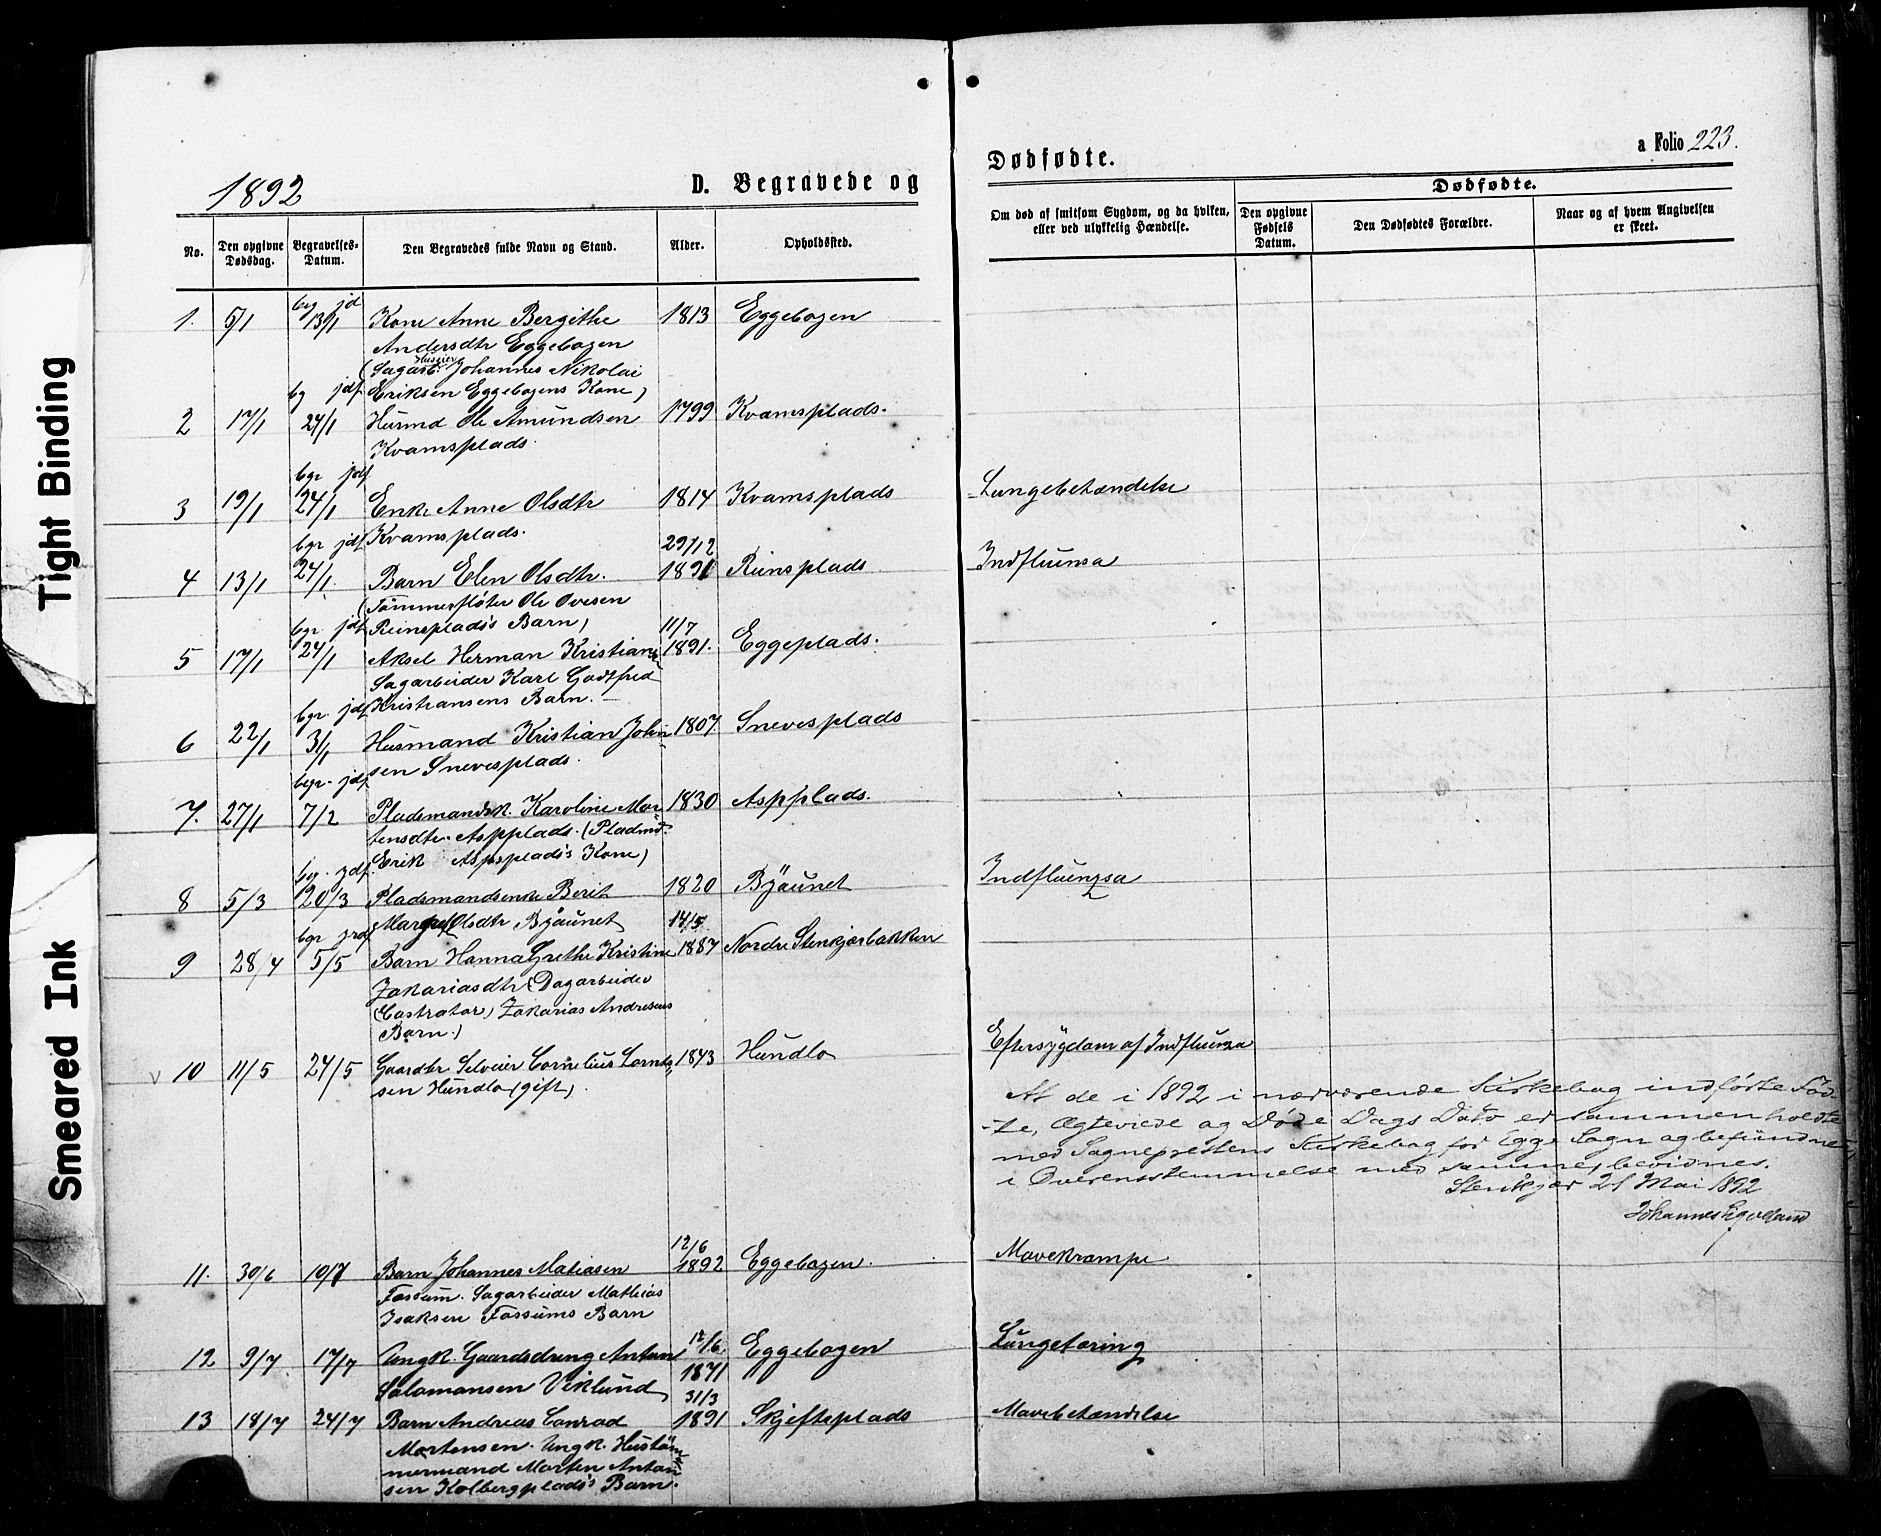 Tight Binding
Smeared Ink
1892
D. Begravede og
No.
Den opgivne Dødsdag.
Begravelses-Datum.
Den Begravedes fulde Navn og Stand.
Alder.
Opholdssted.
1. 5/1 bg jd 13/1 Kone Anne Bergithe 1813 Eggebogen
Andersdtr Eggebogen
Huseier
(Sagarb. Johannes Nikolai
Eriksen Eggebogens Kone)
2 17/1 bg jdf 24/1 Husmd Ole Amundsen 1799 Kvamsplads.
Kvamsplads.
3 19/1 bgr jdf 24/1 Enke Anne Olsdtr 1814 Kvamsplads
Kvamsplads.
4 13/1 bgr jdf 24/1 Barn Elen Olsdtr. 29/12 1891 Reinsplads
(Tömmerfløter Ole Ovesen
Reinsplads's Barn)
5 17/1 bgr jdf 24/1 Aksel Herman Kristians 11/7 1891. Eggeplads.
Sagarbeider Karl Godtfred
Kristiansens Barn. —
6 22/1 bgr. jdf 31/1 Husmand Kristian John 1807. Snevesplads
sen Snevesplads.
7. 27/1 bgr. jdf 7/2 Pladsmandsk. Karoline Mor 1830 Aspplads.
tensdtr. Aspplads. (Pladsmd.
Erik Aspplads's Kone)
8 5/3 bg. jdf. 20/3 Pladsmandsenke Berit 1820 Bjäunet
Margret Olsdtr Bjäunet
9 28/4 bgr jrdf 5/5 Barn Hanna Grethe Kristine 14/5 1887 Nordre Stenkjærbakken
Zakariasdtr (Dagarbeider
(Castrator) Zakarias Andresens
Barn.)
10 11/5 24/5 Gaardbr Selveier Cornelius Lornts 1843 Hundlo
sen Hundlo (gift).
11. 30/6 10/7 Barn Johannes Matiasen 12/6 1892 Eggebogen.
Fossum. Sagarbeider Mathias
Isaksen Fossums Barn
12 9/7. 17/7 Ungk. Gaardsdreng Anton 12/6 1871 Eggebogen
Salomonsen Viklund
13 18/7 24/7 Barn Andreas Conrad 31/3 1891 Skjefteplads
Mortensen. Ungk. Hustöm
mermand Morten Anton
sen Kolbergplads's Barn.
Dødfødte.
a Folio 223.
Om død af smitsom Sygdom, og da hvilken, eller ved ulykkelig Hændelse.
Dødfødte.
Den opgivne Fødsels Datum.
Den Dødfødtes Forældre.
Naar og af hvem Angivelsen er skeet.
Lungebetændelse
Indfluensa
Indfluengsa
Eftersygdom af Indfluensa
At de i 1892 i nærværende Kirkebog indførte Föd-
te, Ægteviede og Døde Dags Dato er sammenholdte
med Sogneprestens Kirkebog for Egge Sogn og befundne
i Overensstemmelse med samme, bevidnes.
Stenkjær 21 Mai 1892
Johannes
Mavekrampe
Lungetæring
Mavebetændelse